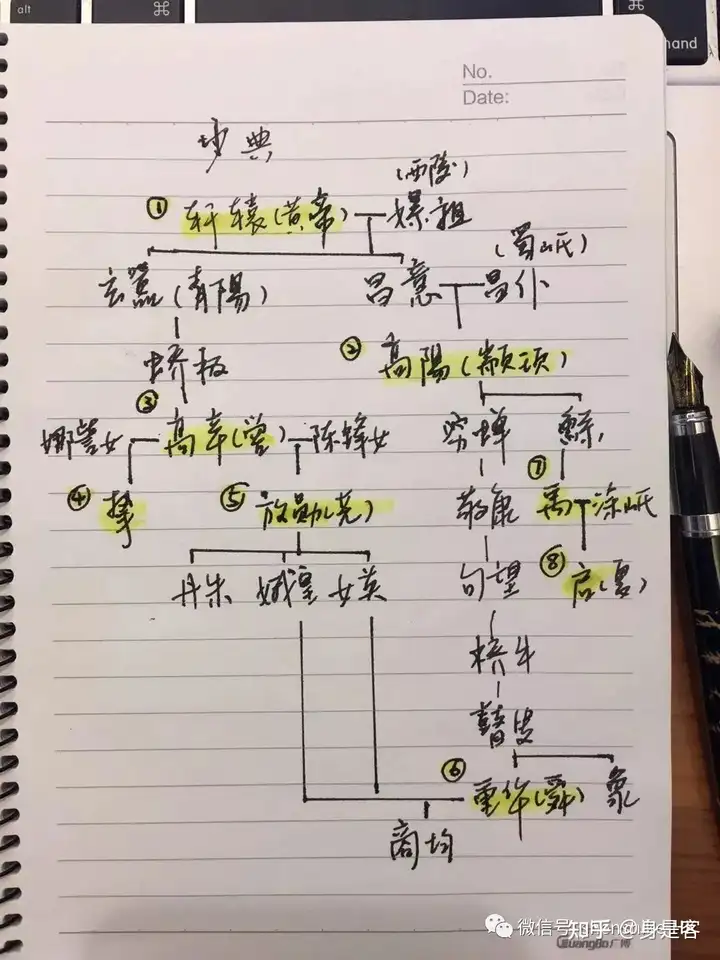 alt
⌘
⌘
hand
No.
Date:
少典
(西陵)
① 轩辕(黄帝) 嫘祖
(蜀山氏)
玄嚣(青陽) 昌意 昌仆
蟜极 ② 高陽(颛顼)
③
娵訾女 高辛(喾) 陈锋女 穷蝉 鲧
④ 挚 ⑤ 放勋(尧) 敬康 ⑦ 禹 涂山氏
丹朱 娥皇 女英 句望 ⑧ 启(夏)
桥牛
瞽叟
⑥ 重华(舜) 象
商均
微信号
知乎 @身是客
GuangBo 广博